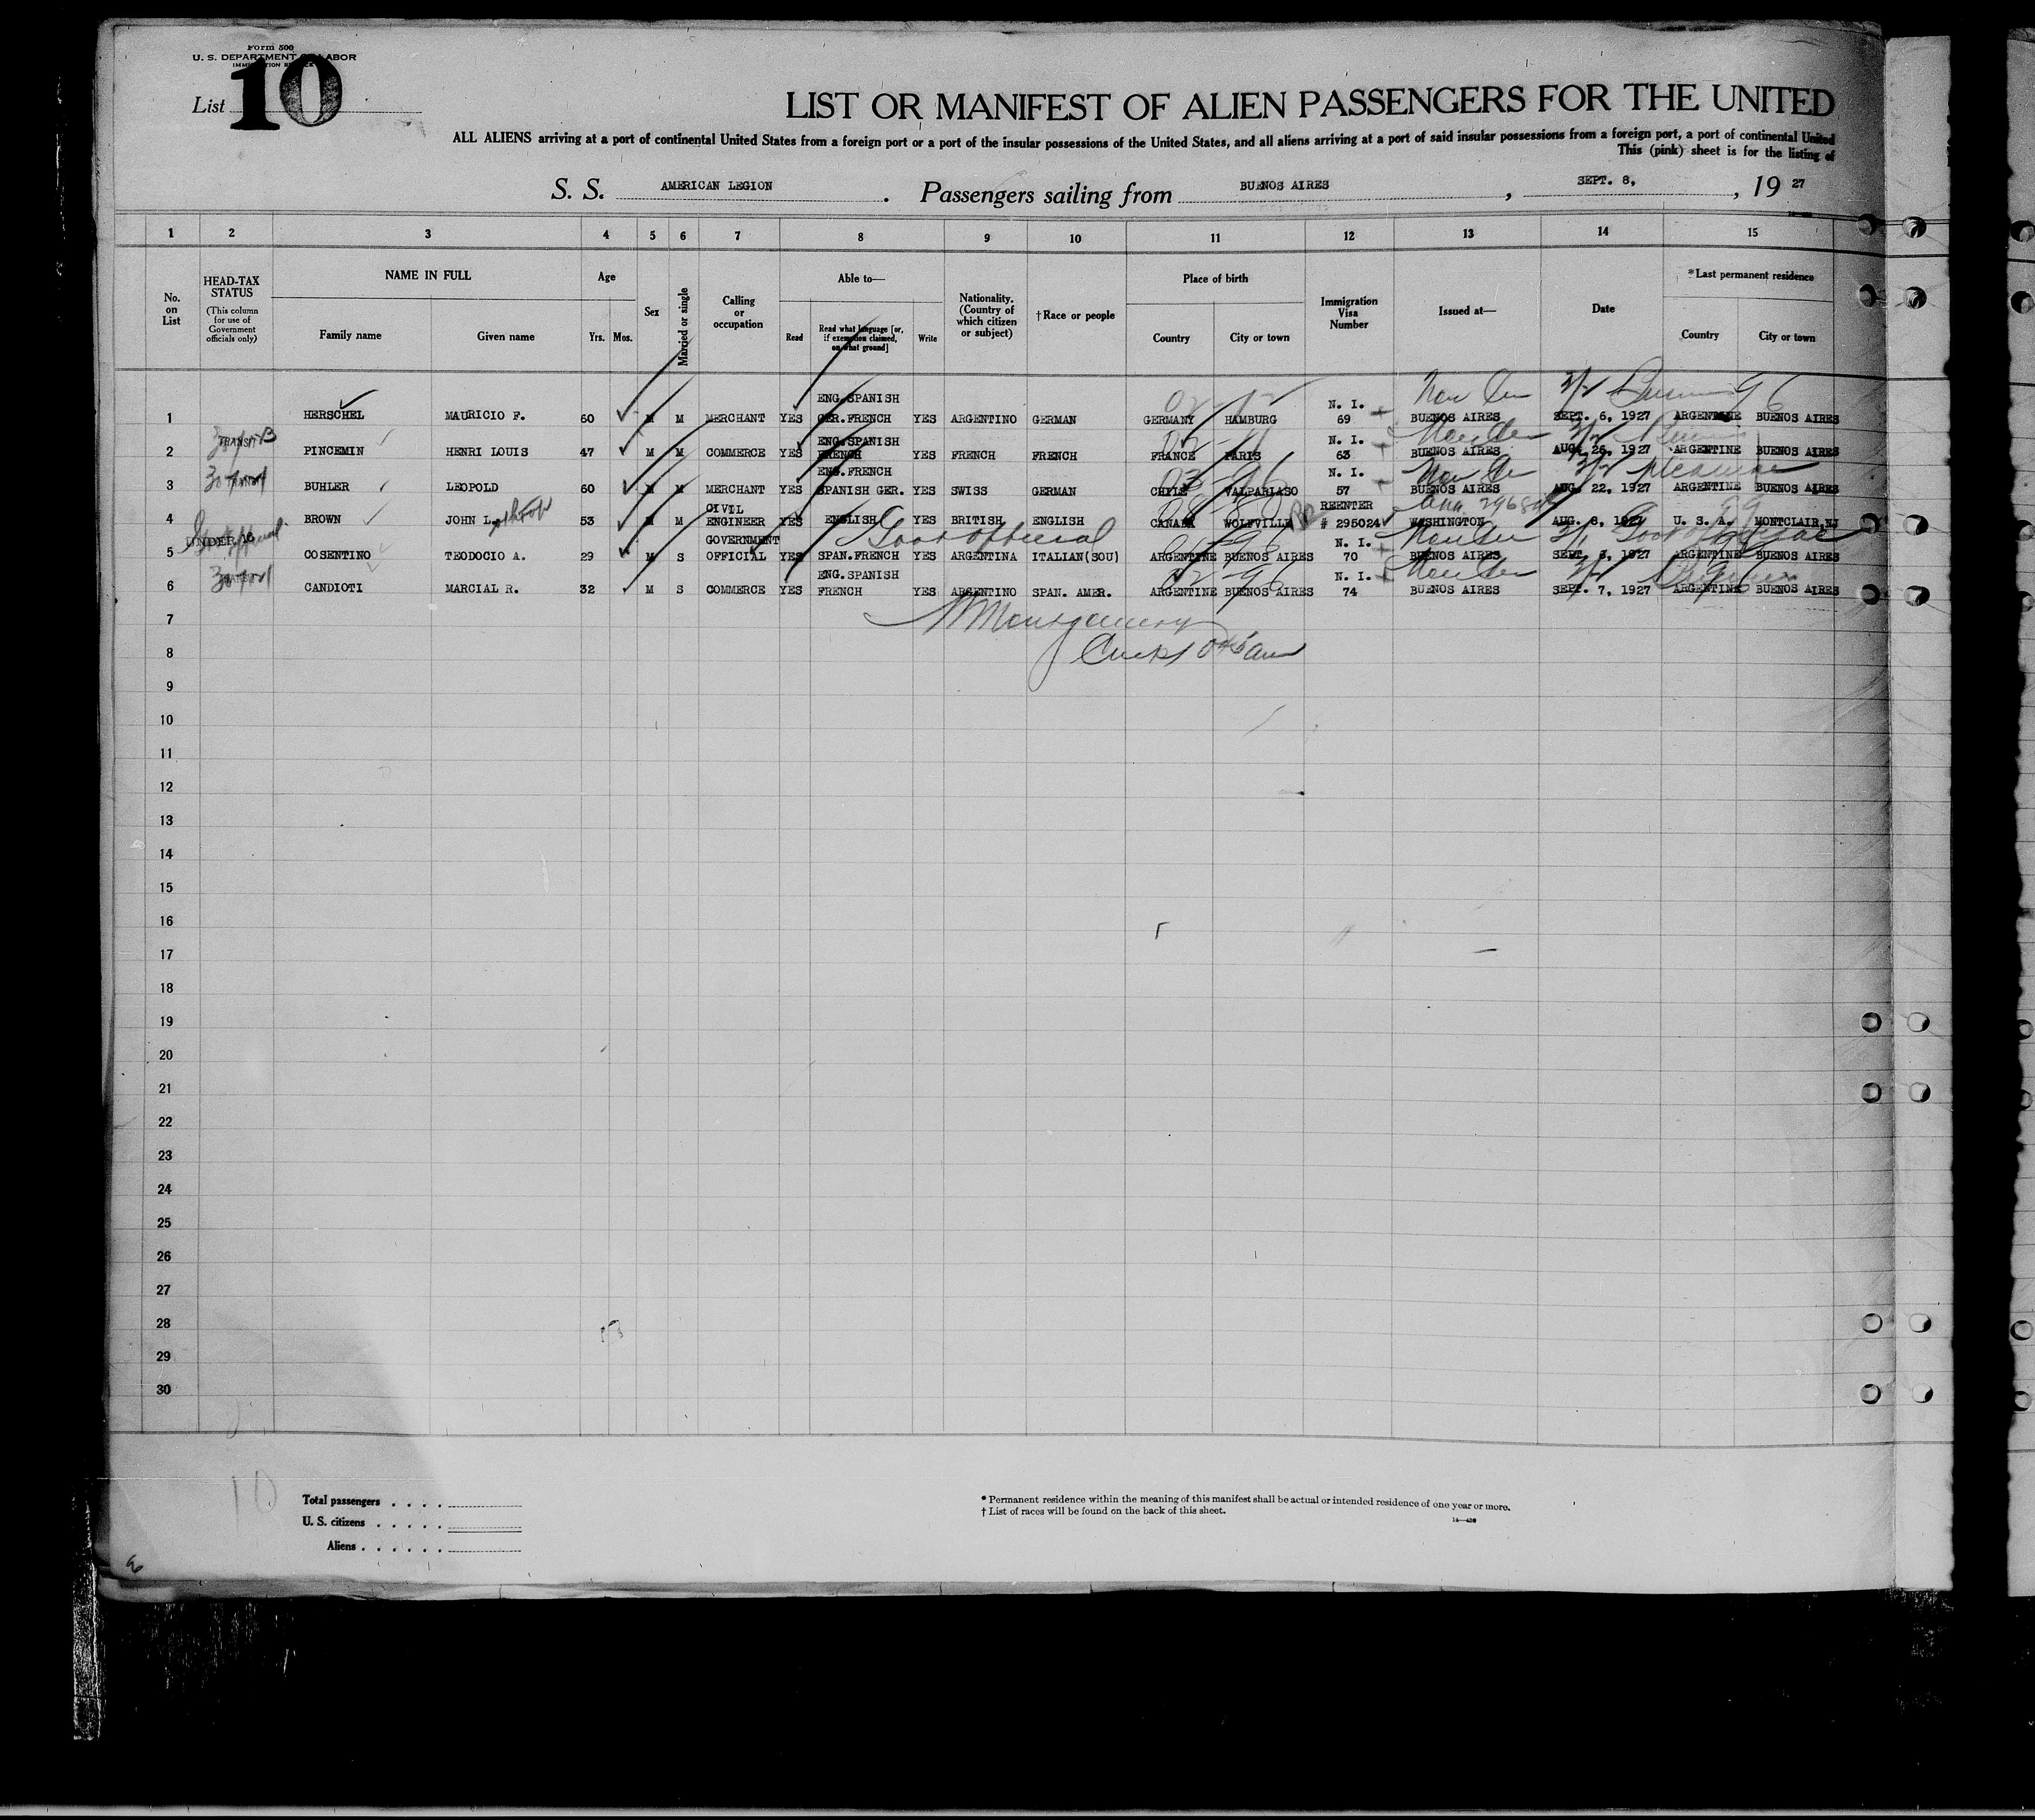 Form 500
U. S. DEPARTMENT OF LABOR
List 10
LIST OR MANIFEST OF ALIEN PASSENGERS FOR THE UNITED
ALL ALIENS arriving at a port of continental United States from a foreign port or a port of the insular possessions of the United States, and all aliens arriving at a port of said insular possessions from a foreign port, a port of continental United
This (pink) sheet is for the listing of
S. S. AMERICAN LEGION. Passengers sailing from BUENOS AIRES, SEPT. 8, , 19 27
1 2 3 4 5 6 7 8 9 10 11 12 13 14 15
No. on List
HEAD-TAX STATUS (This column for use of Government officials only)
NAME IN FULL
Family name Given name
Age
Yrs. Mos.
Sex
Married or single
Calling or occupation
Able to—
Read Read what language [or, if exemption claimed, on what ground] Write
Nationality. (Country of which citizen or subject)
†Race or people
Place of birth
Country City or town
Immigration Visa Number
Issued at—
Date
*Last permanent residence
Country City or town
1 HERSCHEL MAURICIO F. 60 M M MERCHANT YES ENG.SPANISH GER.FRENCH YES ARGENTINO GERMAN GERMANY HAMBURG N. I. 69 BUENOS AIRES SEPT. 6, 1927 ARGENTINE BUENOS AIRES
2 TRANSIT PINCEMIN HENRI LOUIS 47 M M COMMERCE YES ENG.SPANISH FRENCH YES FRENCH FRENCH FRANCE PARIS N. I. 63 BUENOS AIRES AUG. 26, 1927 ARGENTINE BUENOS AIRES
3 BUHLER LEOPOLD 60 M M MERCHANT YES ENG.FRENCH SPANISH GER. YES SWISS GERMAN CHILE VALPARIASO N. I. 57 BUENOS AIRES AUG. 22, 1927 ARGENTINE BUENOS AIRES
4 BROWN JOHN L. 53 M M CIVIL ENGINEER YES ENGLISH YES BRITISH ENGLISH CANADA WOLFVILLE REENTER # 295024 WASHINGTON AUG. 8, 1927 U. S. A. MONTCLAIR,NJ
UNDER 16
5 COSENTINO TEODOCIO A. 29 M S GOVERNMENT OFFICIAL YES SPAN.FRENCH YES ARGENTINA ITALIAN(SOU) ARGENTINE BUENOS AIRES N. I. 70 BUENOS AIRES SEPT. 1927 ARGENTINE BUENOS AIRES
Govt official
6 CANDIOTI MARCIAL R. 32 M S COMMERCE YES ENG.SPANISH FRENCH YES ARGENTINO SPAN. AMER. ARGENTINE BUENOS AIRES N. I. 74 BUENOS AIRES SEPT. 7, 1927 ARGENTINE BUENOS AIRES
7 Montgomery
8
9
10
11
12
13
14
15
16
17
18
19
20
21
22
23
24
25
26
27
28
29
30
10
Total passengers . . . .
U. S. citizens . . . . .
Aliens . . . . . .
* Permanent residence within the meaning of this manifest shall be actual or intended residence of one year or more.
† List of races will be found on the back of this sheet.